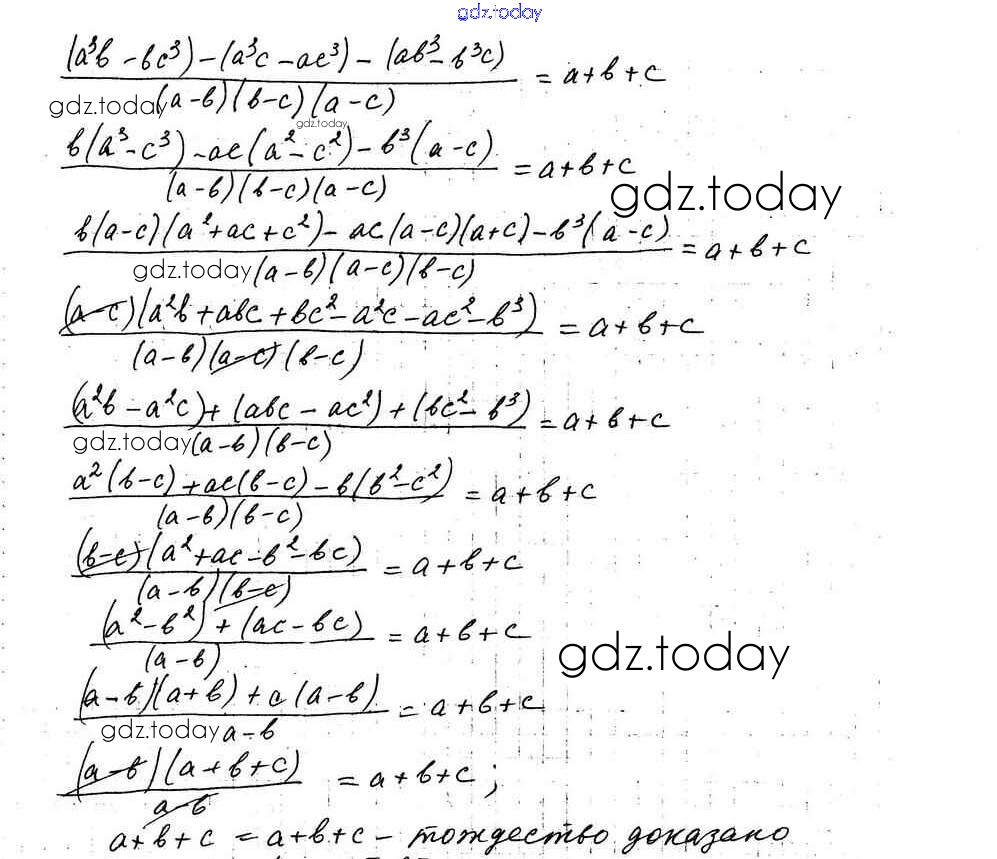 gdz.today
(a³b - bc³) - (a³c - ac³) - (ab³ - b³c) / (a-b)(b-c)(a-c) = a+b+c
gdz.today
gdz.today
b(a³-c³) - ac(a²-c²) - b³(a-c) / (a-b)(b-c)(a-c) = a+b+c
gdz.today
b(a-c)(a²+ac+c²) - ac(a-c)(a+c) - b³(a-c) / (a-b)(a-c)(b-c) = a+b+c
gdz.today
(a-c)(a²b+abc+bc²-a²c-ac²-b³) / (a-b)(a-c)(b-c) = a+b+c
(a²b-a²c)+(abc-ac²)+(bc²-b³) / (a-b)(b-c) = a+b+c
gdz.today
a²(b-c)+ac(b-c)-b(b²-c²) / (a-b)(b-c) = a+b+c
(b-c)(a²+ac-b²-bc) / (a-b)(b-c) = a+b+c
(a²-b²)+(ac-bc) / (a-b) = a+b+c
gdz.today
(a-b)(a+b)+c(a-b) / a-b = a+b+c
gdz.today
(a-b)(a+b+c) / a-b = a+b+c;
a+b+c = a+b+c - тождество доказано